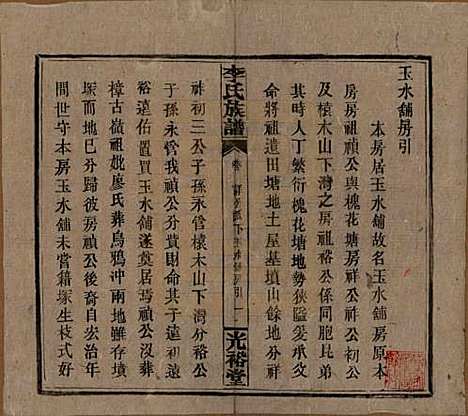 玉水舖房引
本房居玉水舖故名玉水舖房原本
房房祖禎公與槐花塘房祥公祚初公
及榬木山下灣之房祖裕公係同胞昆弟
其時人丁繁衍槐花塘地勢狹隘爰承父
命將祖遺田塘地土屋基墳山餘地分祥
李氏族譜
卷
下
引
一
光裕堂
祚初三公子孫永管榬木山下灣分裕公
子孫永管我禎公分貲財而于遠迢
裕遠佑置買玉水舖遂奠居焉禎公沒葬
樟古嶺祖妣廖氏葬烏鴉冲兩地雖存墳
塚而地已分歸彼房禎公後裔自宏治年
間世守本房玉水舖未嘗籍塚生枝式好